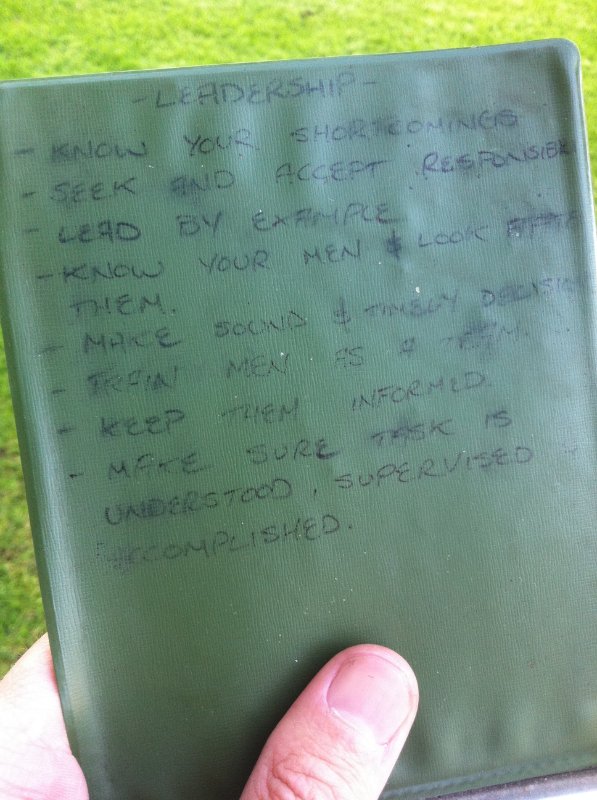 - LEADERSHIP -
- KNOW YOUR SHORTCOMINGS
- SEEK AND ACCEPT
- LEAD BY EXAMPLE
- KNOW YOUR MEN & LOOK
THEM.
- MAKE SOUND & TIMELY
- TRAIN MEN AS A TEAM.
- KEEP THEM INFORMED.
- MAKE SURE TASK IS
UNDERSTOOD, SUPERVISED +
ACCOMPLISHED.